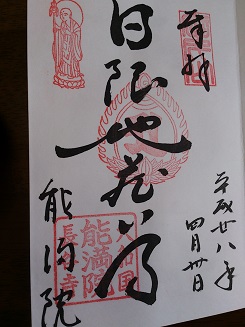 奉拝
日限地蔵尊
平成廿八年
四月卅日
能満院
大和国
能満院
長谷寺